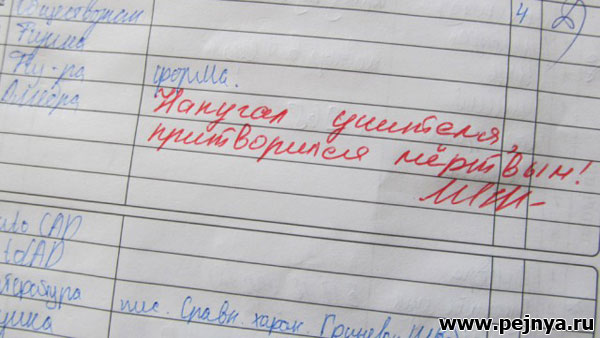 Обществознан 4
Физика
Физ-ра форма.
Алгебра
Напугал учителя,
притворился мёртвым!
AutoCAD
литература пис. Сравн. харак. Гринева
www.pejnya.ru